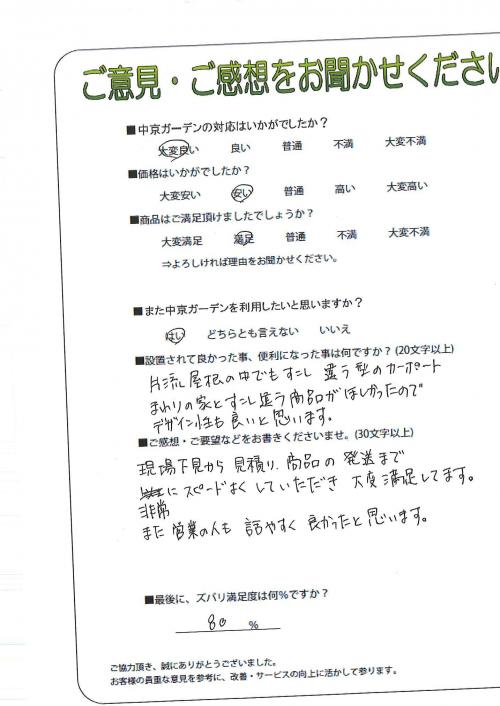 ご意見・ご感想をお聞かせくださ
■中京ガーデンの対応はいかがでしたか？
大変良い 良い 普通 不満 大変不満
■価格はいかがでしたか？
大変安い 安い 普通 高い 大変高い
■商品はご満足頂けましたでしょうか？
大変満足 満足 普通 不満 大変不満
⇒よろしければ理由をお聞かせください。
■また中京ガーデンを利用したいと思いますか？
はい どちらとも言えない いいえ
■設置されて良かった事、便利になった事は何ですか？(20文字以上)
片流屋根の中でもすこし 違う型のカーポート
まわりの家とすこし違う商品がほしかったので
デザイン性も良いと思います。
■ご感想・ご要望などをお書きくださいませ。(30文字以上)
現場下見から見積り、商品の発送まで
にスピードよくしていただき 大変満足してます。
非常
また営業の人も 話やすく 良かったと思います。
■最後に、ズバリ満足度は何％ですか？
80 ％
ご協力頂き、誠にありがとうございました。
お客様の貴重な意見を参考に、改善・サービスの向上に活かして参ります。